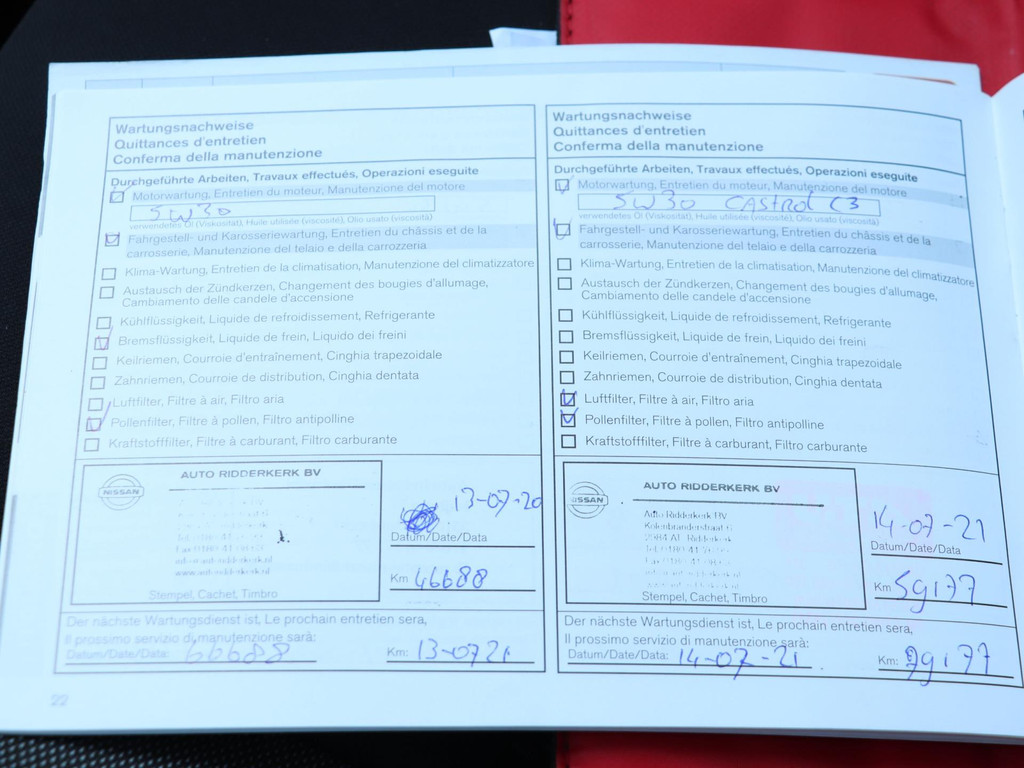 Wartungsnachweise
Quittances d'entretien
Conferma della manutenzione
Durchgeführte Arbeiten, Travaux effectués, Operazioni eseguite
Motorwartung, Entretien du moteur, Manutenzione del motore
5W30
verwendetes Öl (Viskosität), Huile utilisée (viscosité), Olio usato (viscosità)
Fahrgestell- und Karosseriewartung, Entretien du châssis et de la
carrosserie, Manutenzione del telaio e della carrozzeria
Klima-Wartung, Entretien de la climatisation, Manutenzione del climatizzatore
Austausch der Zündkerzen, Changement des bougies d'allumage,
Cambiamento delle candele d'accensione
Kühlflüssigkeit, Liquide de refroidissement, Refrigerante
Bremsflüssigkeit, Liquide de frein, Liquido dei freini
Keilriemen, Courroie d'entraînement, Cinghia trapezoidale
Zahnriemen, Courroie de distribution, Cinghia dentata
Luftfilter, Filtre à air, Filtro aria
Pollenfilter, Filtre à pollen, Filtro antipolline
Kraftstofffilter, Filtre à carburant, Filtro carburante
NISSAN
AUTO RIDDERKERK BV
13-07-20
Datum/Date/Data
Km 46688
Stempel, Cachet, Timbro
Der nächste Wartungsdienst ist, Le prochain entretien sera,
Il prossimo servizio di manutenzione sarà:
Datum/Date/Data: 66688
Km: 13-0721
22
Wartungsnachweise
Quittances d'entretien
Conferma della manutenzione
Durchgeführte Arbeiten, Travaux effectués, Operazioni eseguite
Motorwartung, Entretien du moteur, Manutenzione del motore
5W30 CAStrol C3
verwendetes Öl (Viskosität), Huile utilisée (viscosité), Olio usato (viscosità)
Fahrgestell- und Karosseriewartung, Entretien du châssis et de la
carrosserie, Manutenzione del telaio e della carrozzeria
Klima-Wartung, Entretien de la climatisation, Manutenzione del climatizzatore
Austausch der Zündkerzen, Changement des bougies d'allumage,
Cambiamento delle candele d'accensione
Kühlflüssigkeit, Liquide de refroidissement, Refrigerante
Bremsflüssigkeit, Liquide de frein, Liquido dei freini
Keilriemen, Courroie d'entraînement, Cinghia trapezoidale
Zahnriemen, Courroie de distribution, Cinghia dentata
Luftfilter, Filtre à air, Filtro aria
Pollenfilter, Filtre à pollen, Filtro antipolline
Kraftstofffilter, Filtre à carburant, Filtro carburante
NISSAN
AUTO RIDDERKERK BV
Auto Ridderkerk BV
Ridderkerk
14-07-21
Datum/Date/Data
Km 59177
Stempel, Cachet, Timbro
Der nächste Wartungsdienst ist, Le prochain entretien sera,
Il prossimo servizio di manutenzione sarà:
Datum/Date/Data: 14-07-21
Km: 79177